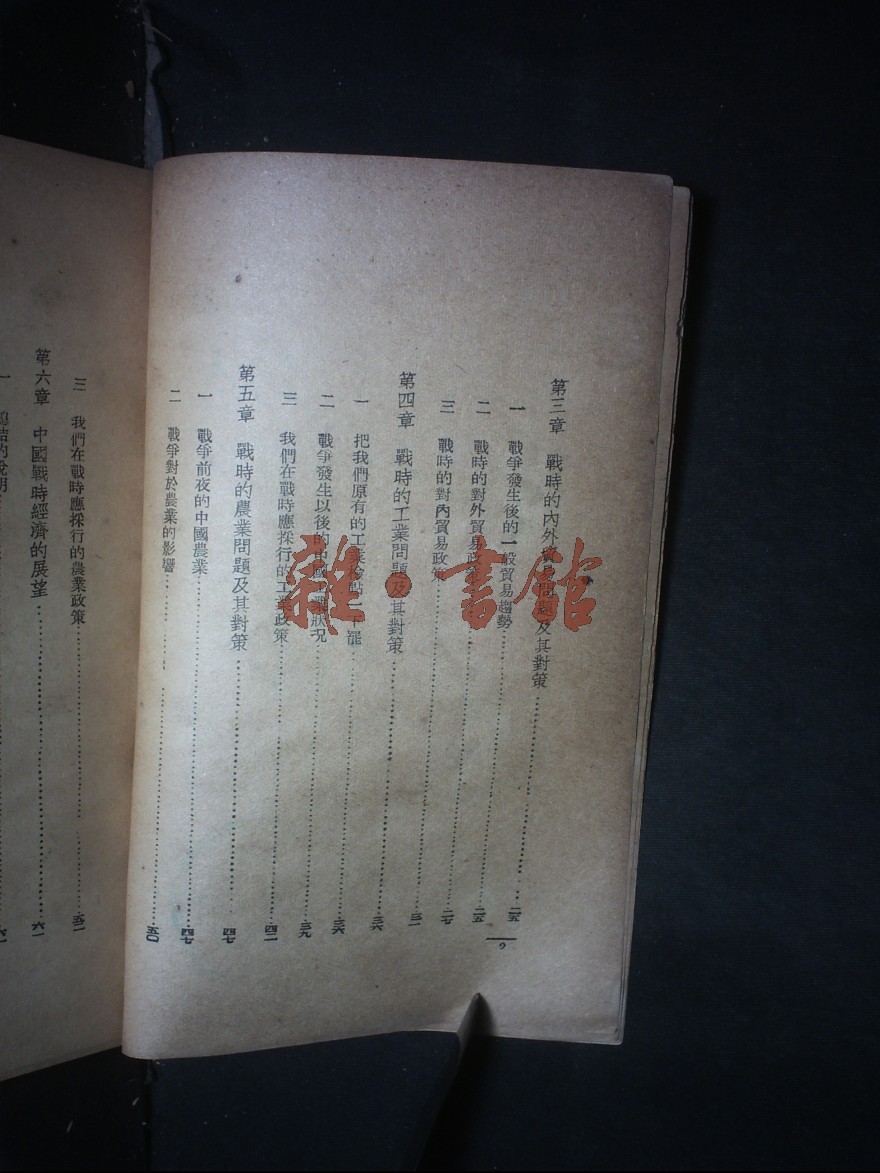 第三章 戰時的內外貿易問題及其對策 二五
一 戰爭發生後的一般貿易趨勢 二五
二 戰時的對外貿易政策 二七
三 戰時的對內貿易政策 三二
第四章 戰時的工業問題及其對策 三六
一 把我們原有的工業檢點一下罷 三六
二 戰爭發生以後的中國工業狀況 三九
三 我們在戰時應採行的工業政策 四二
第五章 戰時的農業問題及其對策 四七
一 戰爭前夜的中國農業 四七
二 戰爭對於農業的影響 五〇
三 我們在戰時應採行的農業政策 五二
第六章 中國戰時經濟的展望 六一
一 的說明 六一
2
雜·書館